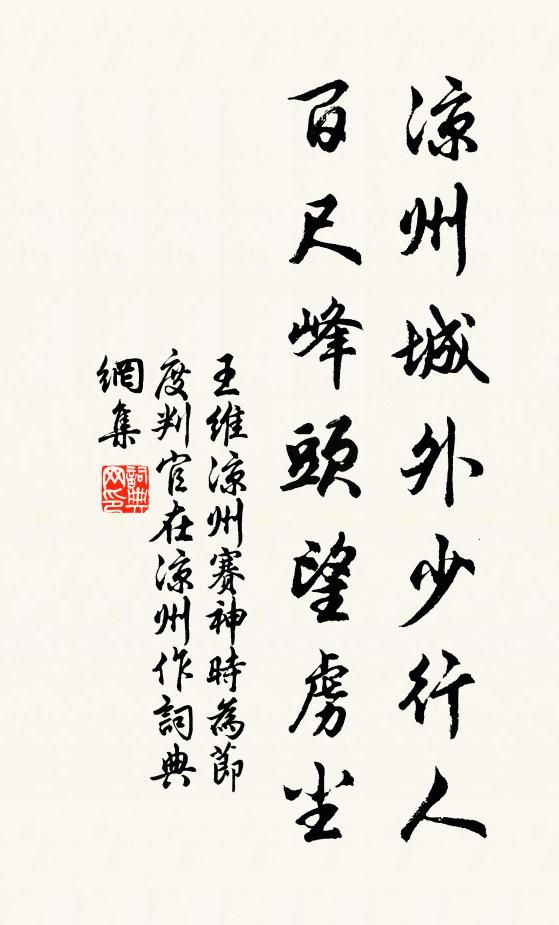 涼州城外少行人
百尺峰頭望虜尘
王維涼州賽神時為節
度判官在涼州作詞典
網集
詞典
网印